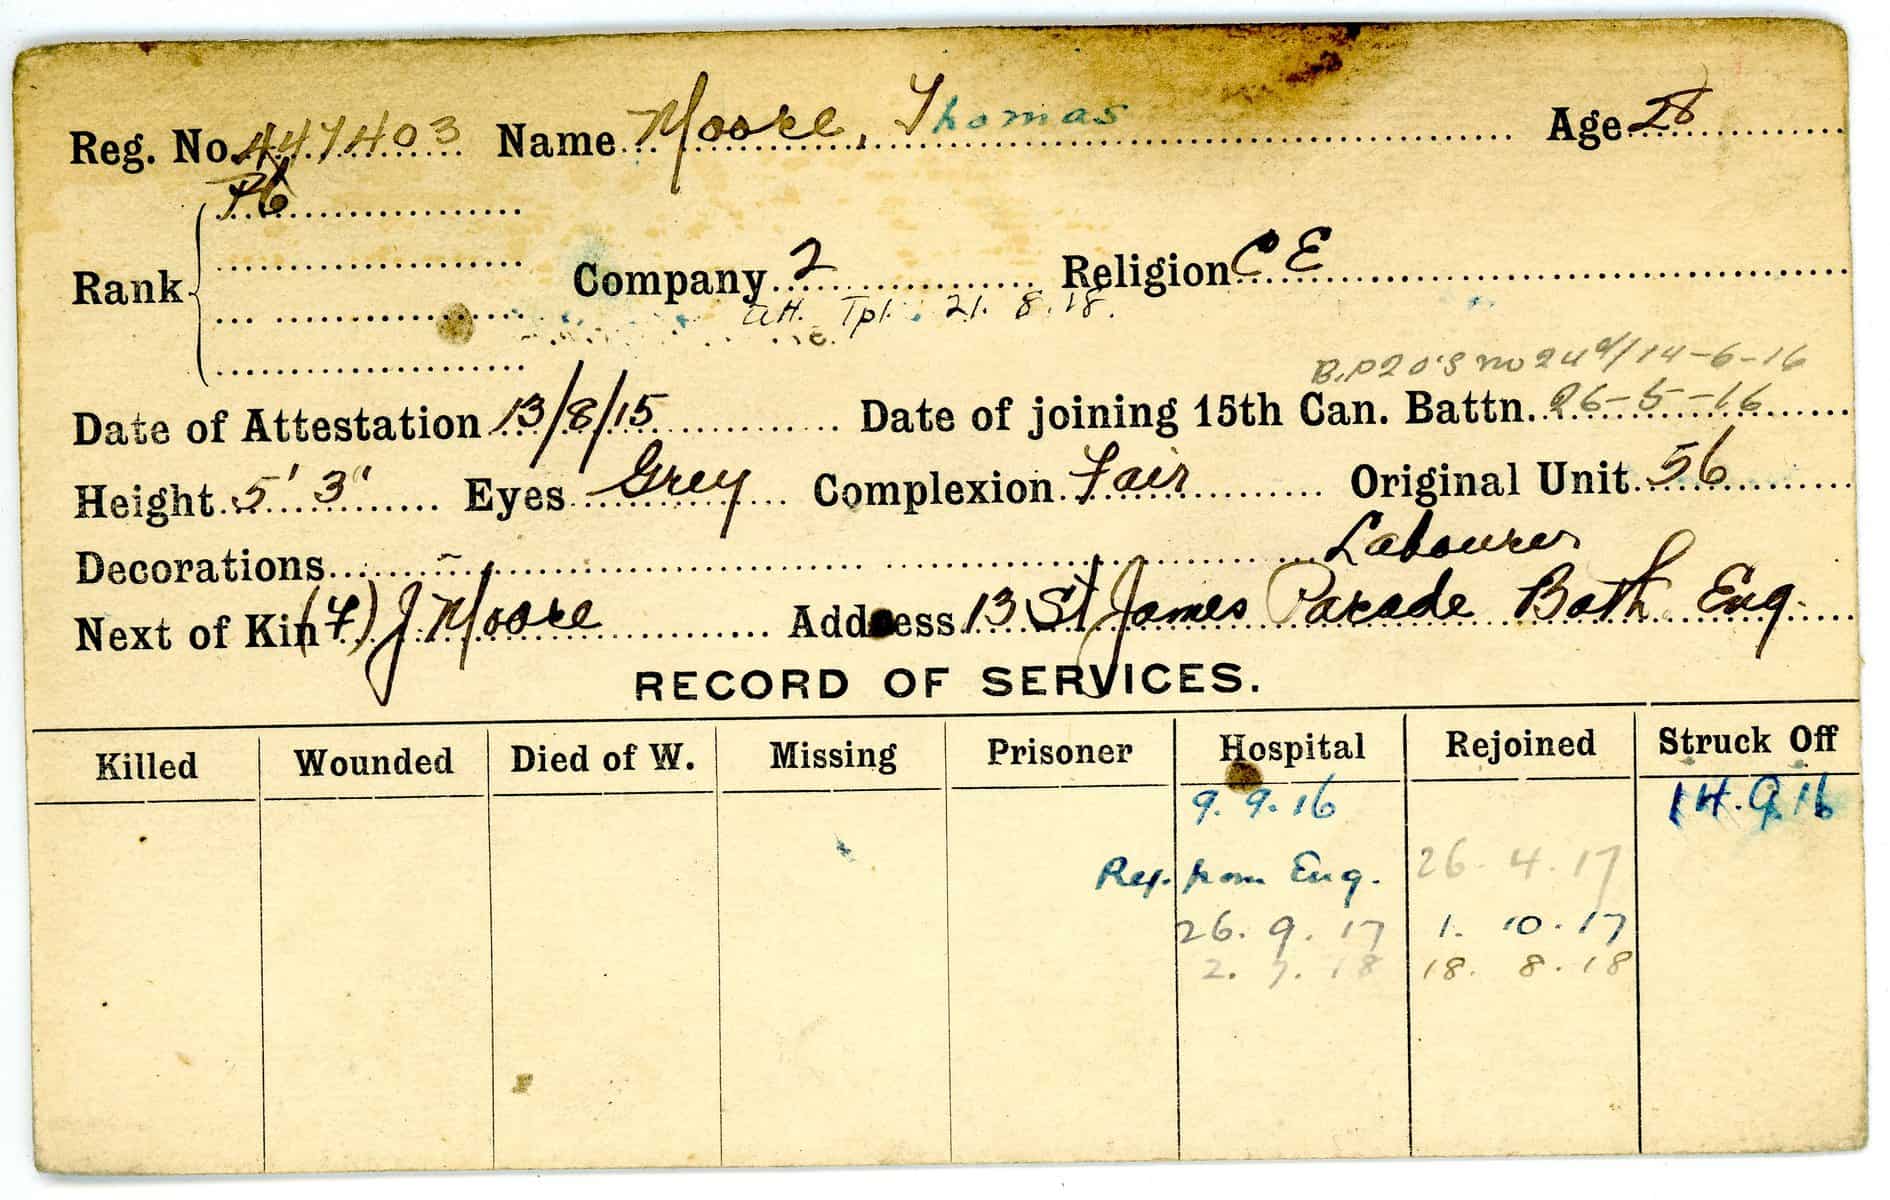 Reg. No. 447403 Name Moore, Thomas Age 28
Pte
Rank
Company 2 Religion C E
att. Tpt. 21. 8. 18.
B.P2 O's No 24 d/14-6-16
Date of Attestation 13/8/15 Date of joining 15th Can. Battn. 26-5-16
Height 5' 3" Eyes Grey Complexion Fair Original Unit 56
Decorations ~ Labourer
Next of Kin (F) J Moore Address 13 St James Parade Bath Eng.
RECORD OF SERVICES.
Killed Wounded Died of W. Missing Prisoner Hospital Rejoined Struck Off
9. 9. 16 14. 9. 16
Rej. from Eng. 26. 4. 17
26. 9. 17 1. 10. 17
2. 7. 18 18. 8. 18